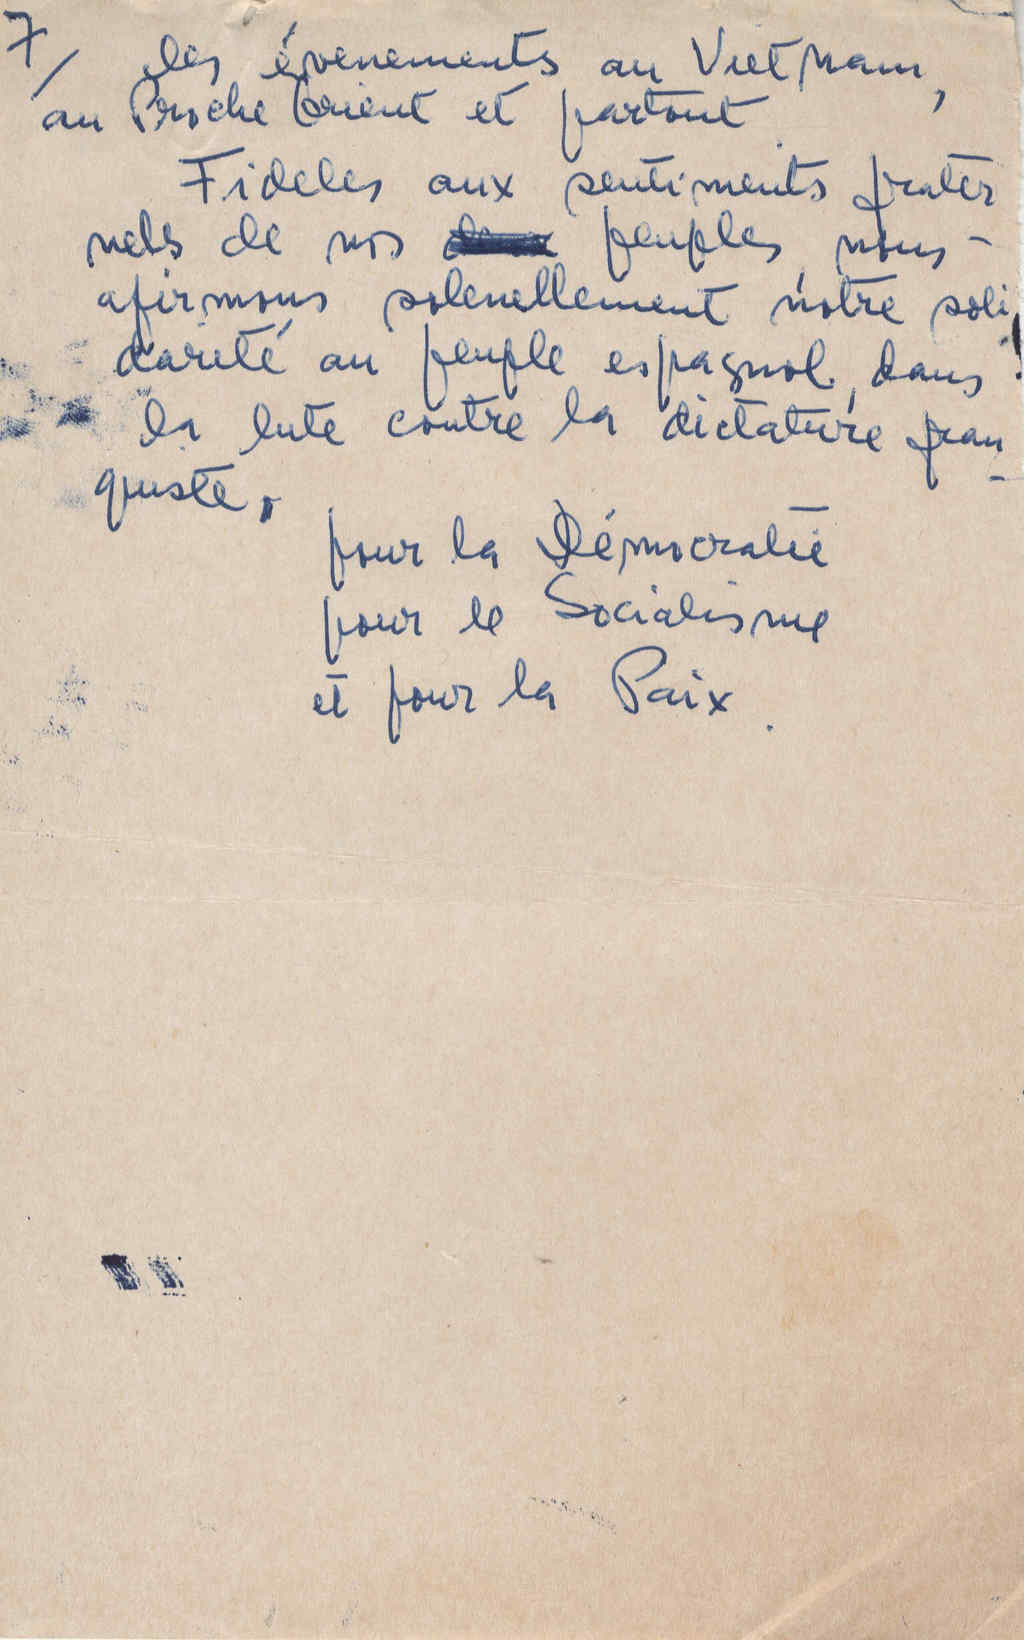 7/ les évenements au Viet Nam,
au Proche Orient et partout
Fideles aux sentiments frater
nels de nos peuples, nous
afirmons solenellement notre soli
darité au peuple espagnol, dans
la lute contre la dictature fran-
quiste.
pour la Démocratie
pour le Socialisme
et pour la Paix.